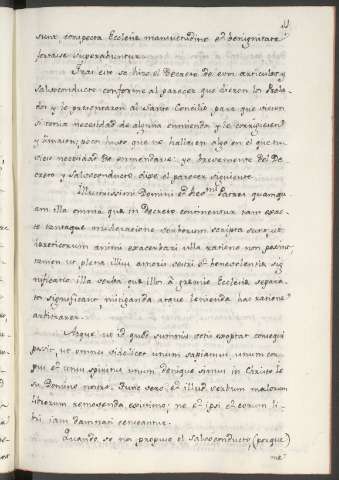 sunt, conspecta Ecclesiæ mansuetudine et benignitate
fortasse superabuntur.
Tras esto se hizo el Decreto de estos articulos y
salvoconducto conforme al parecer que dieron los Prela-
dos y le presentaron al Santo Concilio, para que viesen
si tenia necesidad de alguna enmienda y le corrigiesen
y
algo en el que tu-
viese necesidad de enmendarse. yo brevemente del De-
creto y salvoconducto, dixe el parecer siguiente.
Illustrissimi Domini et Rev.mi Patres quamqu-
am illa omnia, que in Decreto continentur tam exac-
te tantaque consideratione verborum scripta sunt, ut
exteriorum animi exacerbari ulla ratione non possint
tamen ut plena illis amoris vestri et benevolentia sig-
nificatio illa verba que illos à gremio Ecclesiæ separa-
tos significant, mitiganda atque lenienda hac ratione
arbitrarer.
Atque ut id quod summis votis exoptat consequi
possit, ut omnes videlicet unum sapiamus unum cor-
pus et unus spiritus unum denique simus in Christo Je-
su Domino nostro. Tunc vero et illud verbum malorum
librorum removendum existimo, ne et ipsi et eorum li-
bri, iam damnari censeantur.
Quando se nos propuso el salvoconducto, (porque)
me